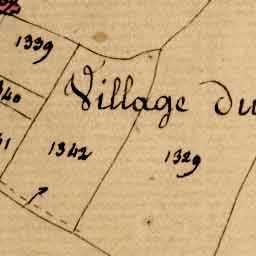 1339
Village du
1342
1329